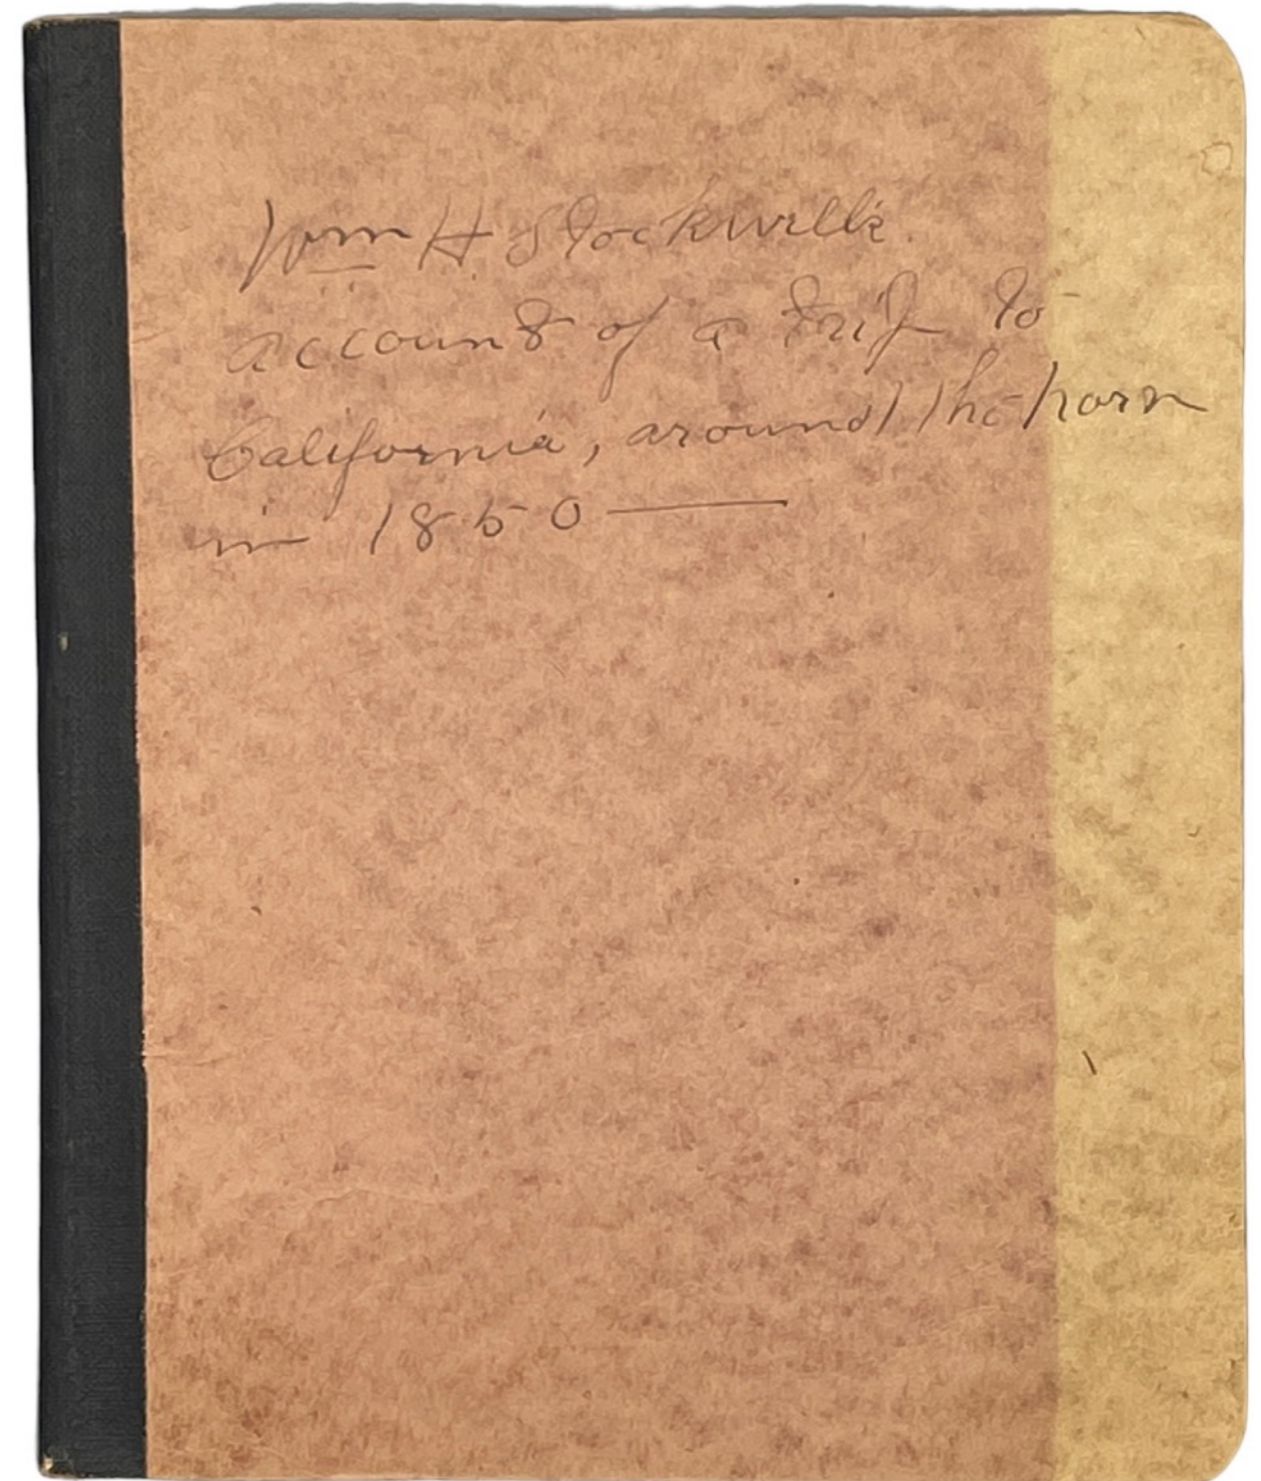 Wm H Stockwells
account of a trip to
California, around the horn
in 1850 —